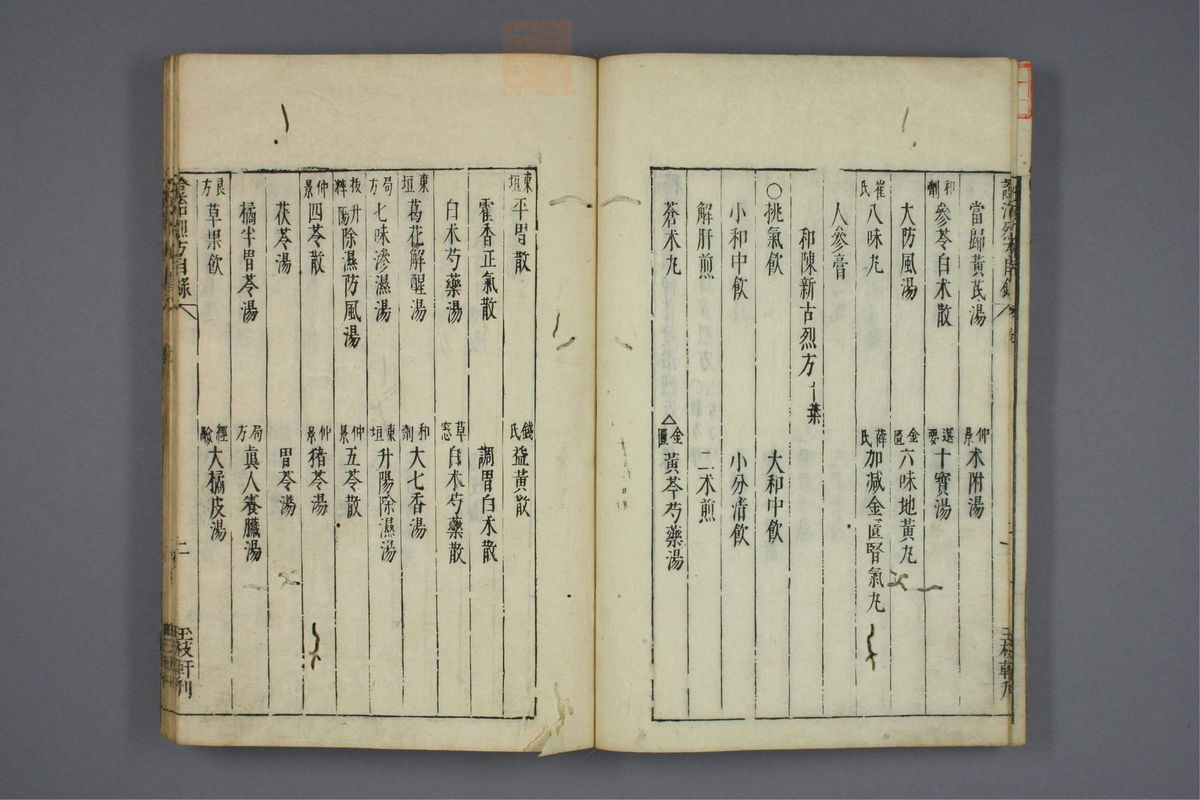 當歸黃芪湯 仲景 朮附湯
和劑 參苓白朮散 選要 十寶湯
大防風湯 金匱 六味地黃丸
崔氏 八味丸 薛氏 加減金匱腎氣丸
人參膏
和陳新古烈方 十一葉
○桃氣飲 大和中飲
小和中飲 小分清飲
解肝煎 二朮煎
蒼朮丸 △金匱 黃芩芍藥湯
玉枝軒刊
東垣 平胃散 錢氏 益黃散
霍香正氣散 調胃白朮散
白朮芍藥湯 草窓 白朮芍藥散
東垣 葛花解酲湯 和劑 大七香湯
局方 七味滲濕湯 東垣 升陽除濕湯
拔粹 升陽除濕防風湯 仲景 五苓散
仲景 四苓散 仲景 猪苓湯
茯苓湯 胃苓湯
橘半胃苓湯 局方 眞人養臟湯
良方 草果飲 經驗 大橘皮湯
烈方目錄 二 玉枝軒刊